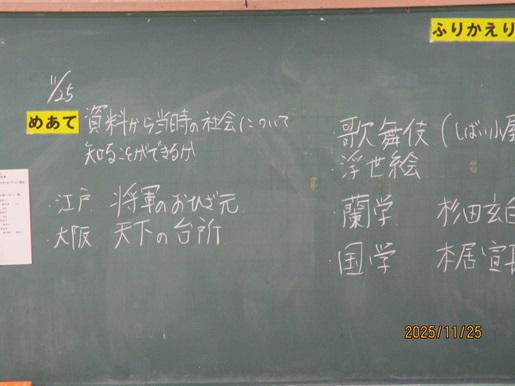 ふりかえり
11/25
めあて 資料から当時の社会について
知ることができるか
・江戸 将軍のおひざ元
・大阪 天下の台所
歌舞伎(しばい小屋
・浮世絵
・蘭学 杉田玄白
・国学 本居宣長
2025/11/25